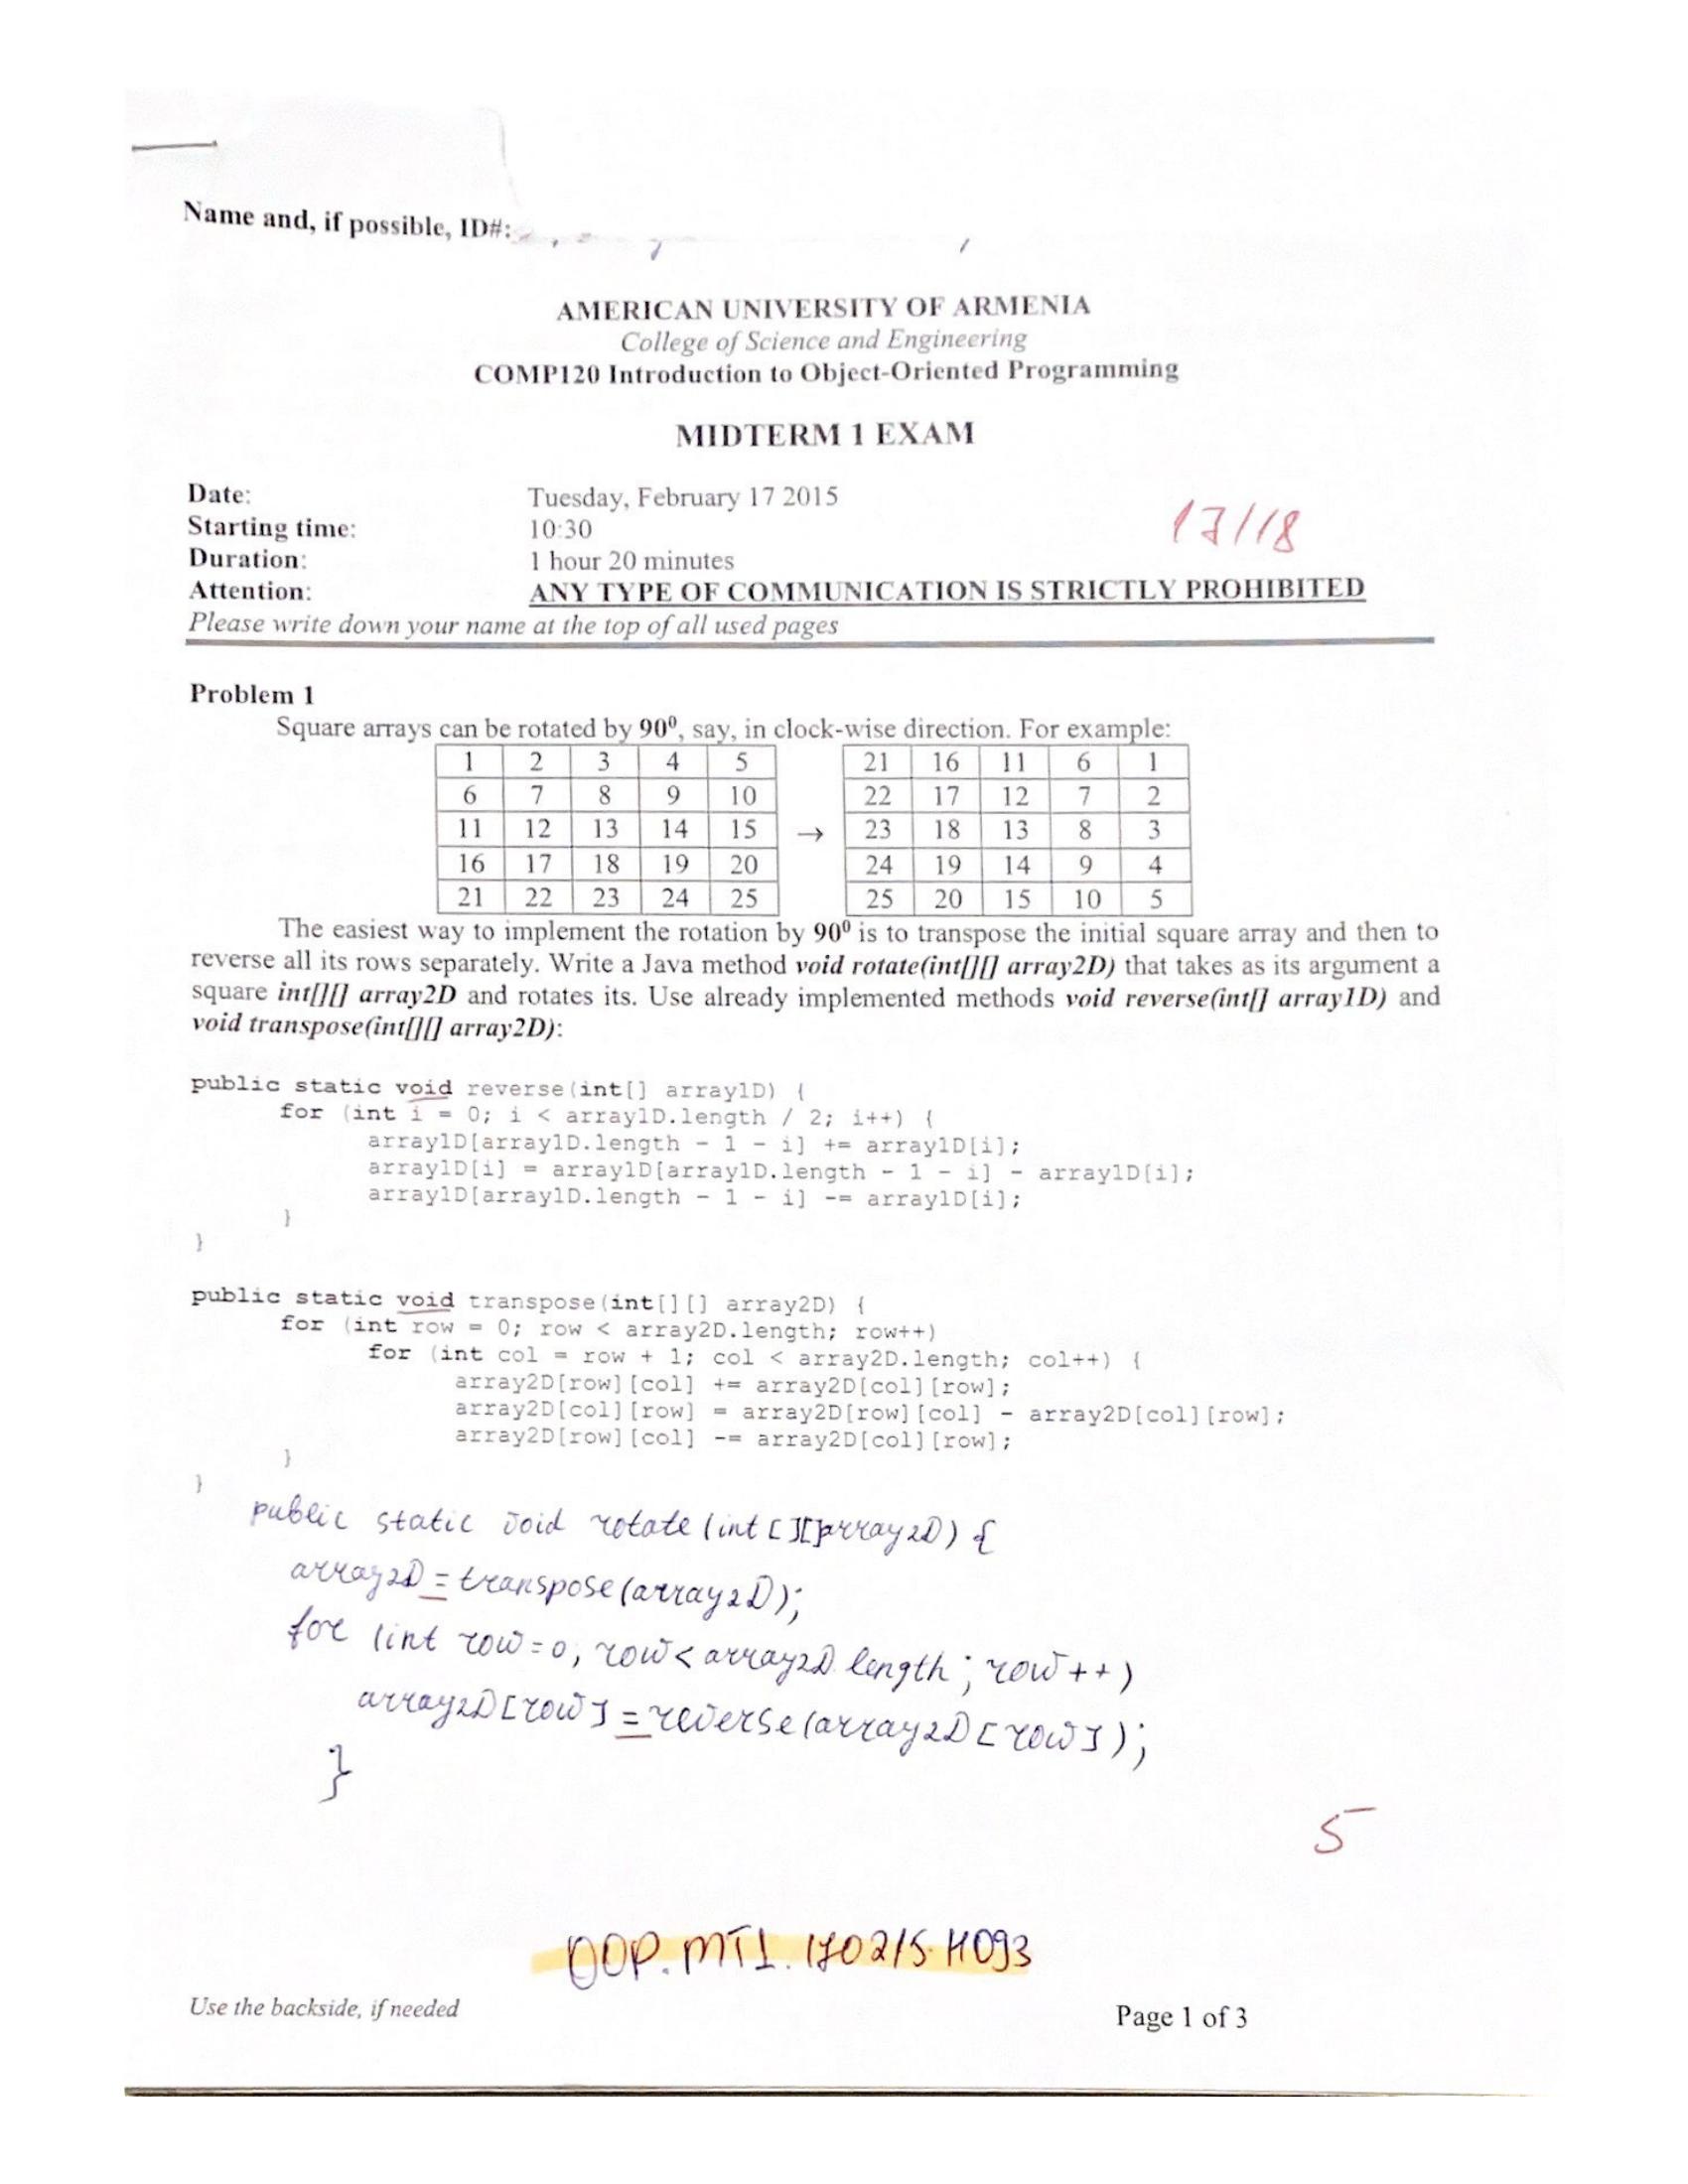 Name and, if possible, ID#:
AMERICAN UNIVERSITY OF ARMENIA
College of Science and Engineering
COMP120 Introduction to Object-Oriented Programming
MIDTERM 1 EXAM
Date: Tuesday, February 17 2015
17/18
Starting time: 10:30
Duration: 1 hour 20 minutes
Attention: ANY TYPE OF COMMUNICATION IS STRICTLY PROHIBITED
Please write down your name at the top of all used pages
Problem 1
Square arrays can be rotated by 90⁰, say, in clock-wise direction. For example:
1 2 3 4 5 21 16 11 6 1
6 7 8 9 10 22 17 12 7 2
11 12 13 14 15 → 23 18 13 8 3
16 17 18 19 20 24 19 14 9 4
21 22 23 24 25 25 20 15 10 5
The easiest way to implement the rotation by 90⁰ is to transpose the initial square array and then to
reverse all its rows separately. Write a Java method void rotate(int[][] array2D) that takes as its argument a
square int[][] array2D and rotates its. Use already implemented methods void reverse(int[] array1D) and
void transpose(int[][] array2D):
public static void reverse(int[] array1D) {
for (int i = 0; i < array1D.length / 2; i++) {
array1D[array1D.length - 1 - i] += array1D[i];
array1D[i] = array1D[array1D.length - 1 - i] - array1D[i];
array1D[array1D.length - 1 - i] -= array1D[i];
}
}
public static void transpose(int[][] array2D) {
for (int row = 0; row < array2D.length; row++)
for (int col = row + 1; col < array2D.length; col++) {
array2D[row][col] += array2D[col][row];
array2D[col][row] = array2D[row][col] - array2D[col][row];
array2D[row][col] -= array2D[col][row];
}
}
public static void rotate (int [][]array2D) {
array2D = transpose(array2D);
for (int row=0; row < array2D.length; row++)
array2D[row] = reverse(array2D[row]);
}
5
OOP.MT1.170215.H093
Use the backside, if needed
Page 1 of 3